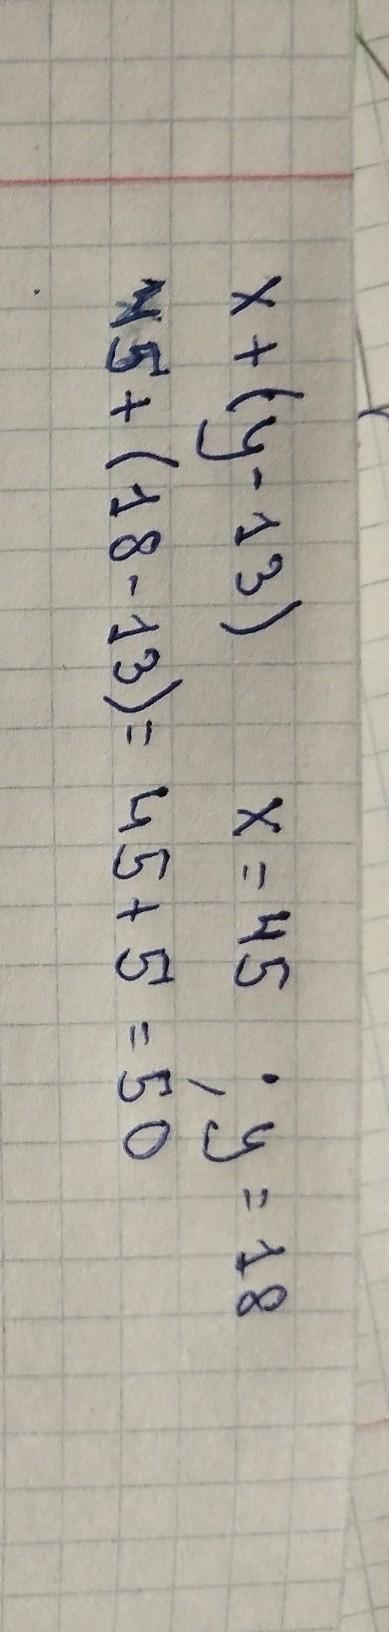 x + (y - 13) x = 45 ; y = 18
45 + (18 - 13) = 45 + 5 = 50